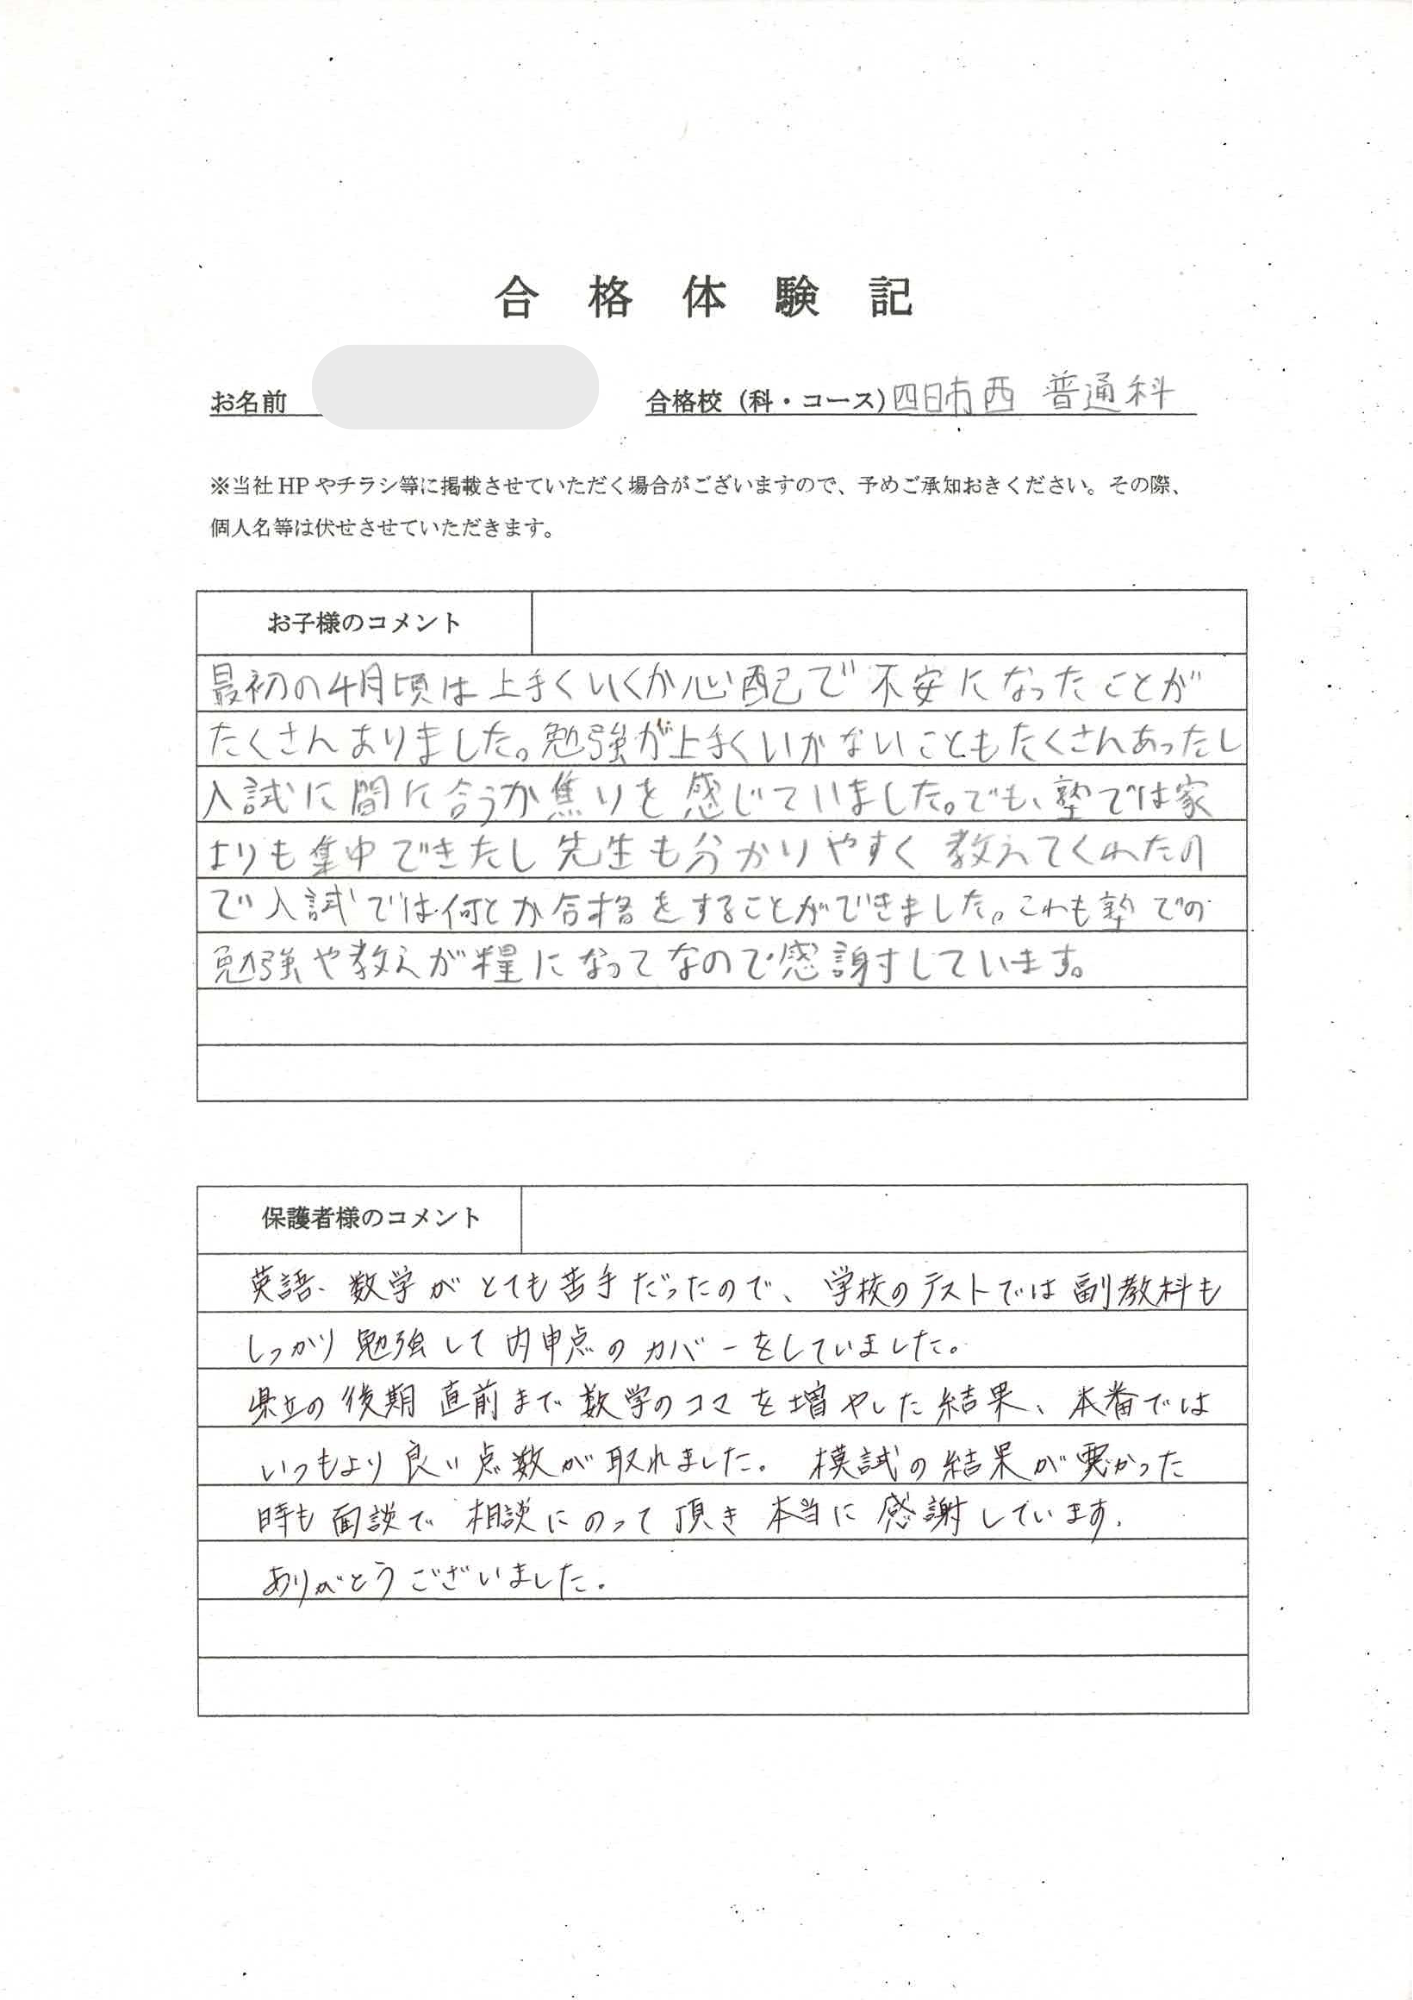 合格体験記
お名前 合格校（科・コース）四日市西 普通科
※当社HPやチラシ等に掲載させていただく場合がございますので、予めご承知おきください。その際、
個人名等は伏せさせていただきます。
お子様のコメント
最初の4月頃は上手くいくか心配で不安になったことが
たくさんありました。勉強が上手くいかないこともたくさんあったし
入試に間に合うか焦りを感じていました。でも、塾では家
よりも集中できたし先生も分かりやすく教えてくれたの
で入試では何とか合格をすることができました。これも塾での
勉強や教えが糧になってなので感謝しています。
保護者様のコメント
英語、数学がとても苦手だったので、学校のテストでは副教科も
しっかり勉強して内申点のカバーをしていました。
県立の後期直前まで数学のコマを増やした結果、本番では
いつもより良い点数が取れました。模試の結果が悪かった
時も面談で相談にのって頂き本当に感謝しています。
ありがとうございました。